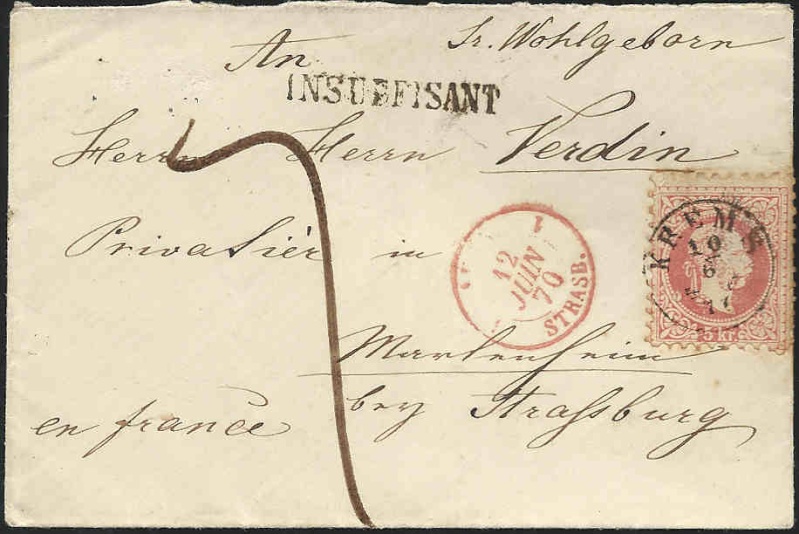 Sr. Wohlgeborn
An
INSUFFISANT
Herrn Herrn Verdin
Privatier in
12
JUIN
70
STRASB.
KREMS
10
6
Marlenheim
bey Strassburg
en france
7